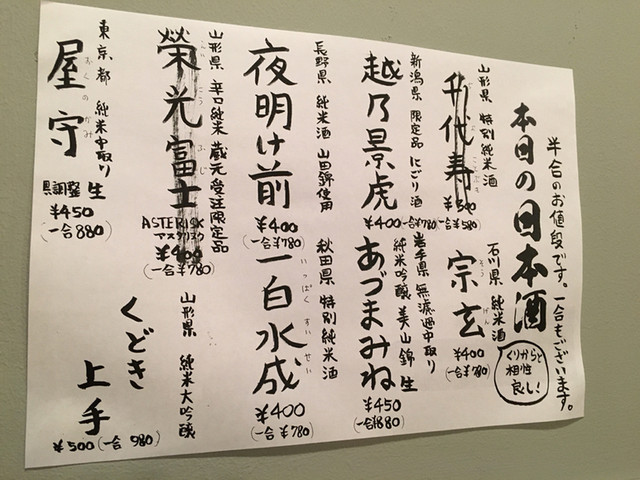 半合のお値段です。一合もございます。
本日の日本酒
山形県 特別純米酒
千代寿
¥300
(一合¥580)
石川県 純米酒
宗玄
そうげん
¥400
(一合¥780)
くりからと
相性
良し!
新潟県 限定品 にごり酒
越乃景虎
¥400
(一合¥780)
岩手県 無濾過中取り
純米吟醸 美山錦 生
あづまみね
¥450
(一合880)
長野県 純米酒 山田錦使用
夜明け前
¥400
(一合¥780)
秋田県 特別純米酒
一白水成
いっぱくすいせい
¥400
(一合¥780)
山形県 辛口純米 蔵元受注限定品
榮光冨士
えいこうふじ
ASTERISK
アスタリスク
¥400
(一合¥780)
山形県 純米大吟醸
くどき
上手
¥500(一合 980)
東京都 純米中取り
屋守
おくのかみ
生
¥450
(一合880)